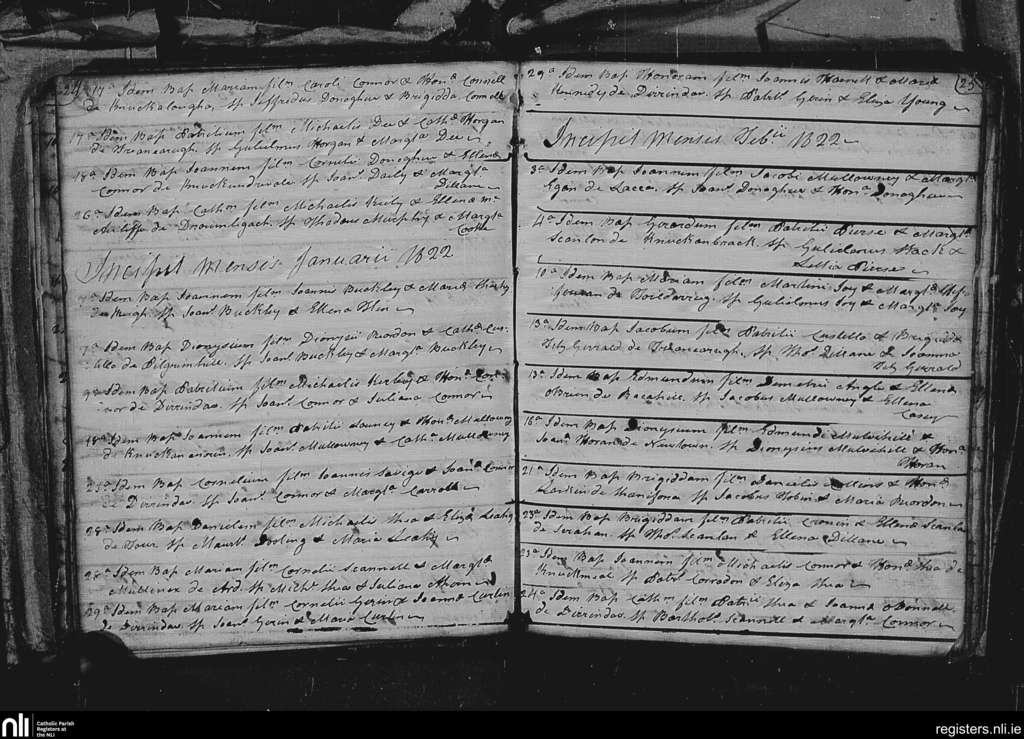 24
17a Idem Bap Mariam film Caroli Connor & Hona Connell
de Knuckalougha, Sp Jeffridus Donoghue & Brigidda Connell
17a Idem Bap Patricium film Michaelis Dee & Catha Horgan
de Trienearugh, Sp Gulielmus Horgan & Margta Dee
18a Idem Bap Joannem film Cornelii Donoghue & Ellena
Connor de Knuckundrivale Sp Joans Daily & Margta
Dillane
26a Idem Bap Cathm film Michaelis Kiely & Ellena Mc
Auliffe de Droumligach, Sp Thadeus Murphy & Margta
Cooke
Incipit Mensis Januarii 1822
7a Idem Bap Joannem film Joannis Buckley & Maria
de Sp Joans Buckley & Ellena
7a Idem Bap Dionysium film Dionysii Riordon & Catha
de Pilgrimhill, Sp Joans Buckley & Margta Buckley
9a Idem Bap Patricium film Michaelis Kerley & Hona Con-
nor de Dirrindas, Sp Joans Connor & Juliana Connor
18a Idem Bap Joannem film Patricii & Hona Mullowny
de Sp Joans Mullowney & Catha Mullowny
25a Idem Bap Cornelium film Joannis Savige & Joana Connor
de Dirrindas Sp Joans Connor & Margta Carroll
Idem Bap Danielem film Michaelis Shea & Eliza Leahy
de Tour, Sp Maurit Dooling & Maria Leahy
Idem Bap Mariam film Cornelii Scannell & Margta
Mullener de Ard, Sp Michl Shea & Juliana Ahern
29a Idem Bap Mariam film Cornelii Gerin & Joanna Curlin
de Dirrindas, Sp Joans Gerin & Maria Curlin
25
29a Idem Bap Honoram film Joannis & Maria
Kennedy de Dirrindas, Sp Patrs Gerin & Eliza Young
Incipit Mensis Febii 1822
3a Idem Bap Joannem film Jacobi Mullowney & Margta
Egan de Lacca, Sp Joans Donoghue & Hona Donoghue
4a Idem Bap Gerardum film Patricii Pierse & Margta
Scanlon de Knuckanbrack Sp Gulielmus &
Lettia Pierse
10a Idem Bap Mariam film Martini Joy & Margta
de Sp Gulielmus Joy & Margta Joy
13a Idem Bap Jacobum film Patricii Custello & Brigidda
Fitz Gerrald de Trienearugh, Sp Thos Dillane & Joanna
Fitz Gerrald
13a Idem Bap Edmundum film Demetrii & Ellena
Obrien de Racahill, Sp Jacobus Mullowney & Ellena
Casey
16a Idem Bap Dionysium film Edmundi Mulvihill &
Joana Horan de Newtown, Sp Dionysius Mulvihill & Hona
Horan
21a Idem Bap Brigiddam film Danielis Collins & Hona
Larkin de Sp Jacobus Tobin & Maria Riordon
23a Idem Bap Brigiddam film Patricii Cronin & Ellena Scanlan
de Sp Thos Scanlan & Ellena Dillane
23a Idem Bap Joannem filmi Michaelis Connor & Hona Shea de
Knuckmeal Sp Patrs Corradon & Eliza Shea
24a Idem Bap Cathm film Patricii Shea & Joanna OConnell
de Dirrindas, Sp Bartholus Scannell & Margta Connor
nli
Catholic Parish
Registers at
the NLI
registers.nli.ie